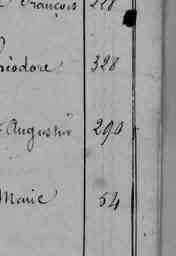 François 228
héodore 328
Augustin 290
Marie 54